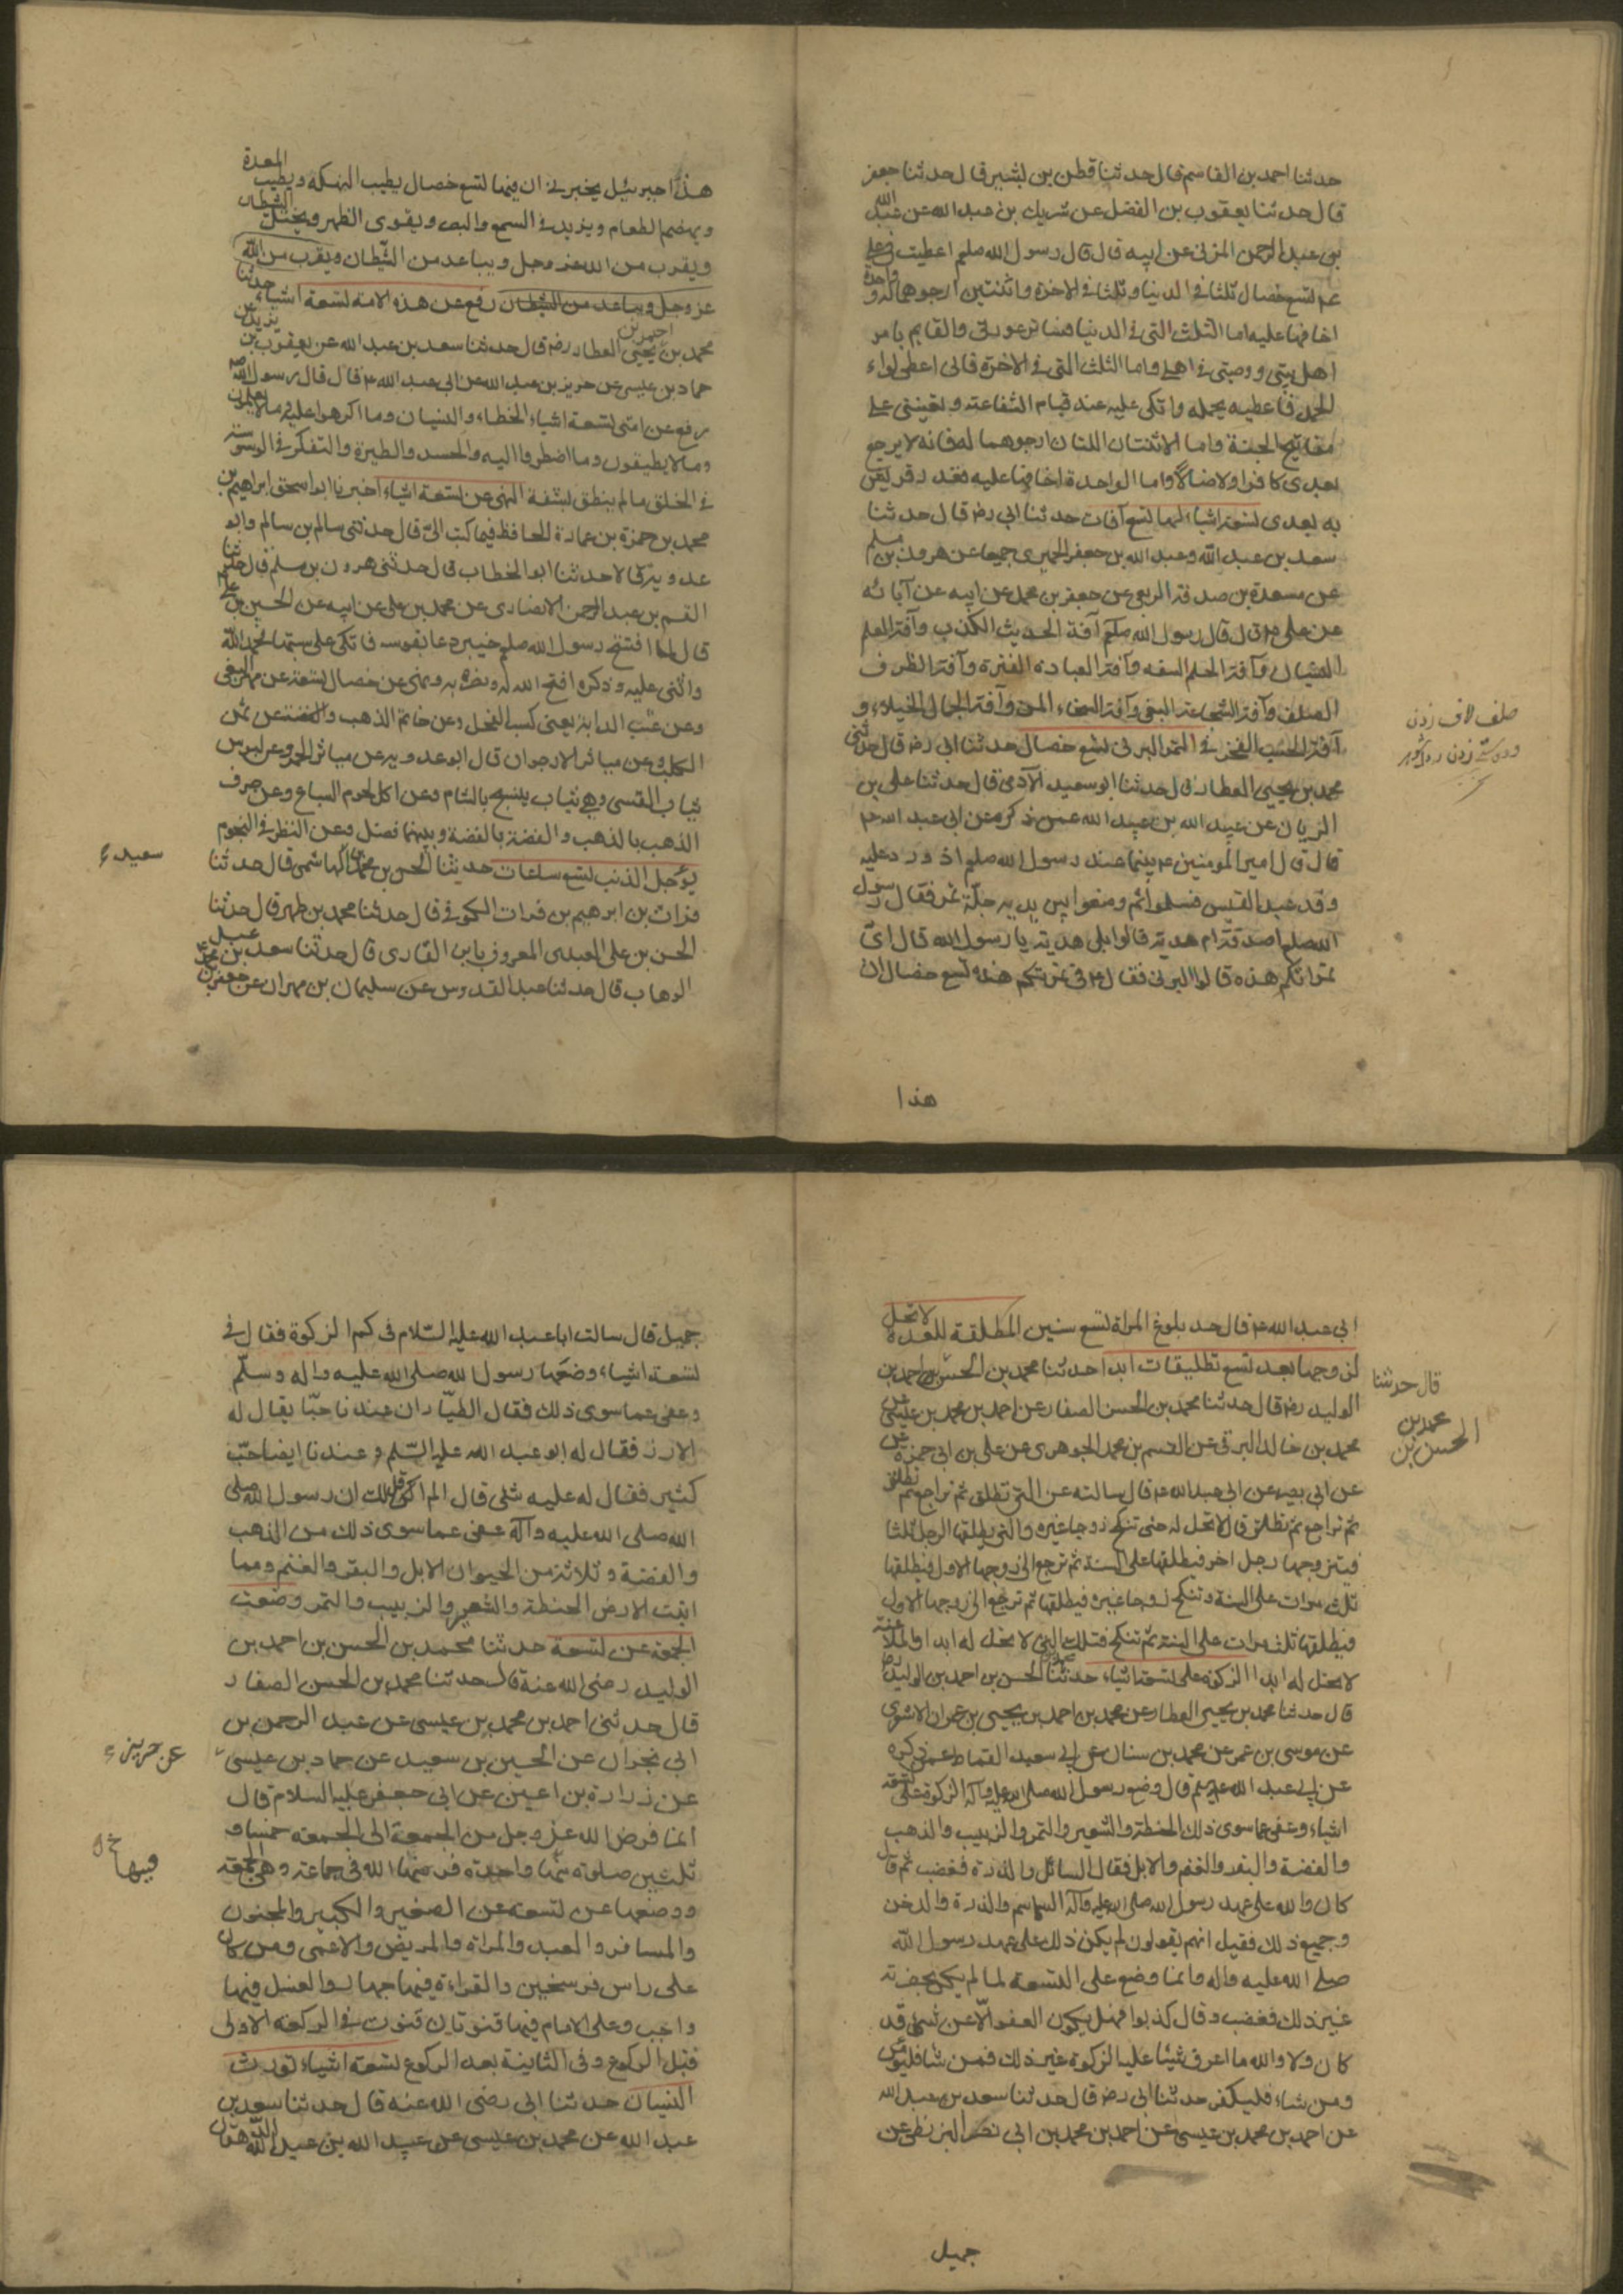 حدثنا احمد بن القاسم قال حدثنا قطن بن بشير قال حدثنا جعفر
قال حدثنا يعقوب بن الفضل عن شريك بن عبد الله عن عبد الله
بن عبد الرحمن المزنى عن ابيه قال قال رسول الله صلعم اعطيت فى على
عم تسع خصال ثلثا فى الدنيا وثلثا فى الاخرة واثنتين ارجوهما له وواحدة
اخافها عليه اما الثلث التى فى الدنيا فساتر عورتى والقايم بامر
اهل بيتى ووصيتى فى اهلى واما الثلث التى فى الاخرة فانى اعطى لواء
الحمد فاعطيه يحمله واتكى عليه عند قيام الشفاعة ويعيننى على
مفاتيح الجنة واما الاثنتان اللتان ارجوهما له فانه لا يرجع
بعدى كافرا ولا ضالا واما الواحدة اخافها عليه فغدر قريش
به بعدى تسعة اشياء لها تسع آفات حدثنا ابى رضه قال حدثنا
سعد بن عبد الله وعبد الله بن جعفر الحميرى جميعا عن هرون بن مسلم
عن مسعدة بن صدقة الربعى عن جعفر بن محمد عن ابيه عن آبائه
عن على عم قال قال رسول الله صلعم آفة الحديث الكذب وآفة العلم
النسيان وآفة الحلم السفه وآفة العبادة الفترة وآفة الظرف
الصلف وآفة الشجاعة البغى وآفة السخاء المن وآفة الجمال الخيلاء و
آفة الحسب الفخر فى التمر البرنى تسع خصال حدثنا ابى رضه قال حدثنى
محمد بن يحيى العطار قال حدثنا ابو سعيد الآدمى قال حدثنا على بن
الزيان عن عبيد الله بن عبيد الله عمن ذكره عن ابى عبد الله عم
قال قال امير المومنين عم بينما عند رسول الله صلعم اذ ورد عليه
وفد عبد القيس فسلموا ثم وضعوا بين يديه جلة تمر فقال رسول
الله صلعم اصدقة ام هدية قالوا بلى هدية يا رسول الله قال اى
تمراتكم هذه قالوا البرنى فقال عم فى تمرتكم هذه تسع خصال ان
صلف لاف زدن
هذا
هذا جبرئيل يخبرنى ان فيها تسع خصال يطيب النكهة ويطيب المعدة
ويهضم الطعام ويزيد فى السمع والبصر ويقوى الظهر ويخبل الشيطان
ويقرب من الله عز وجل ويباعد من الشيطان ويقرب من الله
عز وجل ويباعد من الشيطان رفع عن هذه الامة تسعة اشياء حدثنا
محمد بن احمد بن يحيى العطار رضه قال حدثنا سعد بن عبد الله عن يعقوب بن يزيد عن
حماد بن عيسى عن حريز بن عبد الله عن ابى عبد الله عم قال قال رسول الله صلعم
رفع عن امتى تسعة اشياء الخطاء والنسيان وما اكرهوا عليه وما لا يعلمون
وما لا يطيقون وما اضطروا اليه والحسد والطيرة والتفكر فى الوسوسة
فى الخلق ما لم ينطق بشفة النهى عن تسعة اشياء اخبرنا ابو اسحق ابراهيم بن
محمد بن حمزة بن عمارة الحافظ فيما كتب الىّ قال حدثنى سالم بن سالم وابو
عدوية قالا حدثنا ابو الخطاب قال حدثنى هرون بن مسلم قال حدثنا
القسم بن عبد الرحمن الانصارى عن محمد بن على عن ابيه عن الحسين بن على
قال لما افتتح رسول الله صلعم خيبر دعا بقوسه فاتكى على سيتها فحمد الله
واثنى عليه وذكر ما فتح الله له ونصره به ونهى عن خصال تسعة عن مهر البغى
وعن عسب الدابة يعنى كسب الفحل وعن خاتم الذهب وعن ثمن
الكلب وعن مياثر الارجوان قال ابو عدوية عن مياثر الحمر وعن لبوس
ثياب القسى وهى ثياب ينسج بالشام وعن اكل لحوم السباع وعن صرف
الذهب بالذهب والفضة بالفضة وبينهما فضل وعن النظر فى النجوم
يوجل الذنب تسع ساعات حدثنا الحسن بن محمد الهاشمى قال حدثنا
فرات بن ابرهيم بن فرات الكوفى قال حدثنا محمد بن ظهير قال حدثنا
الحسن بن على العبدى المعروف بابن القارى قال حدثنا سعد بن عبد
الوهاب قال حدثنا عبد القدوس عن سليمان بن مهران عن جعفر بن محمد
سعيد
ابى عبد الله عم قال حد بلوغ المراة تسع سنين المطلقة للعدة لا تحل
لزوجها بعد تسع تطليقات ابدا حدثنا محمد بن الحسن بن احمد بن
الوليد رضه قال حدثنا محمد بن الحسن الصفار عن احمد بن محمد بن عيسى عن
محمد بن خالد البرقى عن القسم بن محمد الجوهرى عن على بن ابى حمزة عن
عن ابى بصير عن ابى عبد الله عم قال سالته عن التى تطلق ثم تراجع ثم تطلق
ثم تراجع ثم تطلق قال لا تحل له حتى تنكح زوجا غيره والتى يطلقها الرجل ثلثا
فيتزوجها رجل اخر فيطلقها على السنة ثم ترجع الى زوجها الاول فيطلقها
ثلث مرات على السنة وتنكح زوجا غيره فيطلقها ثم ترجع الى زوجها الاول
فيطلقها ثلث مرات على السنة ثم تنكح فتلك التى لا تحل له ابدا والملاعنة
لا تحل له ابدا الزكوة على تسعة اشياء حدثنا محمد بن الحسن بن احمد بن الوليد رضه
قال حدثنا محمد بن يحيى العطار عن محمد بن احمد بن يحيى بن عمران الاشعرى
عن موسى بن عمر عن محمد بن سنان عن ابى سعيد القماط عمن ذكره
عن ابى عبد الله عليه سلم قال وضع رسول الله صلى الله عليه وآله الزكوة على تسعة
اشياء وعفى عما سوى ذلك الحنطة والشعير والتمر والزبيب والذهب
والفضة والبقر والغنم والابل فقال السائل والذرة فغضب ثم قال
كان والله على عهد رسول الله صلى الله عليه وآله السماسم والذرة والدخن
وجميع ذلك فقيل انهم يقولون لم يكن ذلك على عهد رسول الله
صلى الله عليه واله وانما وضع على التسعة لما لم يكن بحضرته
غير ذلك فغضب وقال كذبوا فهل يكون العفو الا عن شىء قد
كان ولا والله ما اعرف شيئا عليه الزكوة غير ذلك فمن شاء فليومن
ومن شاء فليكفر حدثنا ابى رضه قال حدثنا سعد بن عبد الله
عن احمد بن محمد بن عيسى عن احمد بن محمد بن ابى نصر البزنطى عن
قال حدثنا
محمد بن
الحسن بن
جميل
جميل قال سالت ابا عبد الله عليه السلام فى كم الزكوة فقال فى
تسعة اشياء وضعها رسول الله صلى الله عليه واله وسلم
وعفى عما سوى ذلك فقال الطيار ان عندنا حبا يقال له
الارز فقال له ابو عبد الله عليه السلم وعندنا ايضا حب
كثير فقال له عليه شىء قال الم اقل لك ان رسول الله صلى
الله صلى الله عليه وآله عفى عما سوى ذلك من الذهب
والفضة وثلاثة من الحيوان الابل والبقر والغنم ومما
انبت الارض الحنطة والشعير والزبيب والتمر وضعت
الجمعة عن تسعة حدثنا محمد بن الحسن بن احمد بن
الوليد رضى الله عنه قال حدثنا محمد بن الحسن الصفار
قال حدثنى احمد بن محمد بن عيسى عن عبد الرحمن بن
ابى نجران عن الحسين بن سعيد عن حماد بن عيسى
عن زرارة بن اعين عن ابى جعفر عليه السلام قال
انما فرض الله عز وجل من الجمعة الى الجمعة خمسا و
ثلثين صلوة منها واحدة فرضها الله فى جماعة وهى الجمعة
ووضعها عن تسعة عن الصغير والكبير والمجنون
والمسافر والعبد والمراة والمريض والاعمى ومن كان
على راس فرسخين والقراءة فيها جهار والغسل فيها
واجب وعلى الامام فيها قنوتان قنوت فى الركعة الاولى
قبل الركوع وفى الثانية بعد الركوع تسعة اشياء تورث
النسيان حدثنا ابى رضى الله عنه قال حدثنا سعد بن
عبد الله عن محمد بن عيسى عن عبيد الله بن عبد الله الدهقان
عن حريز
فيها